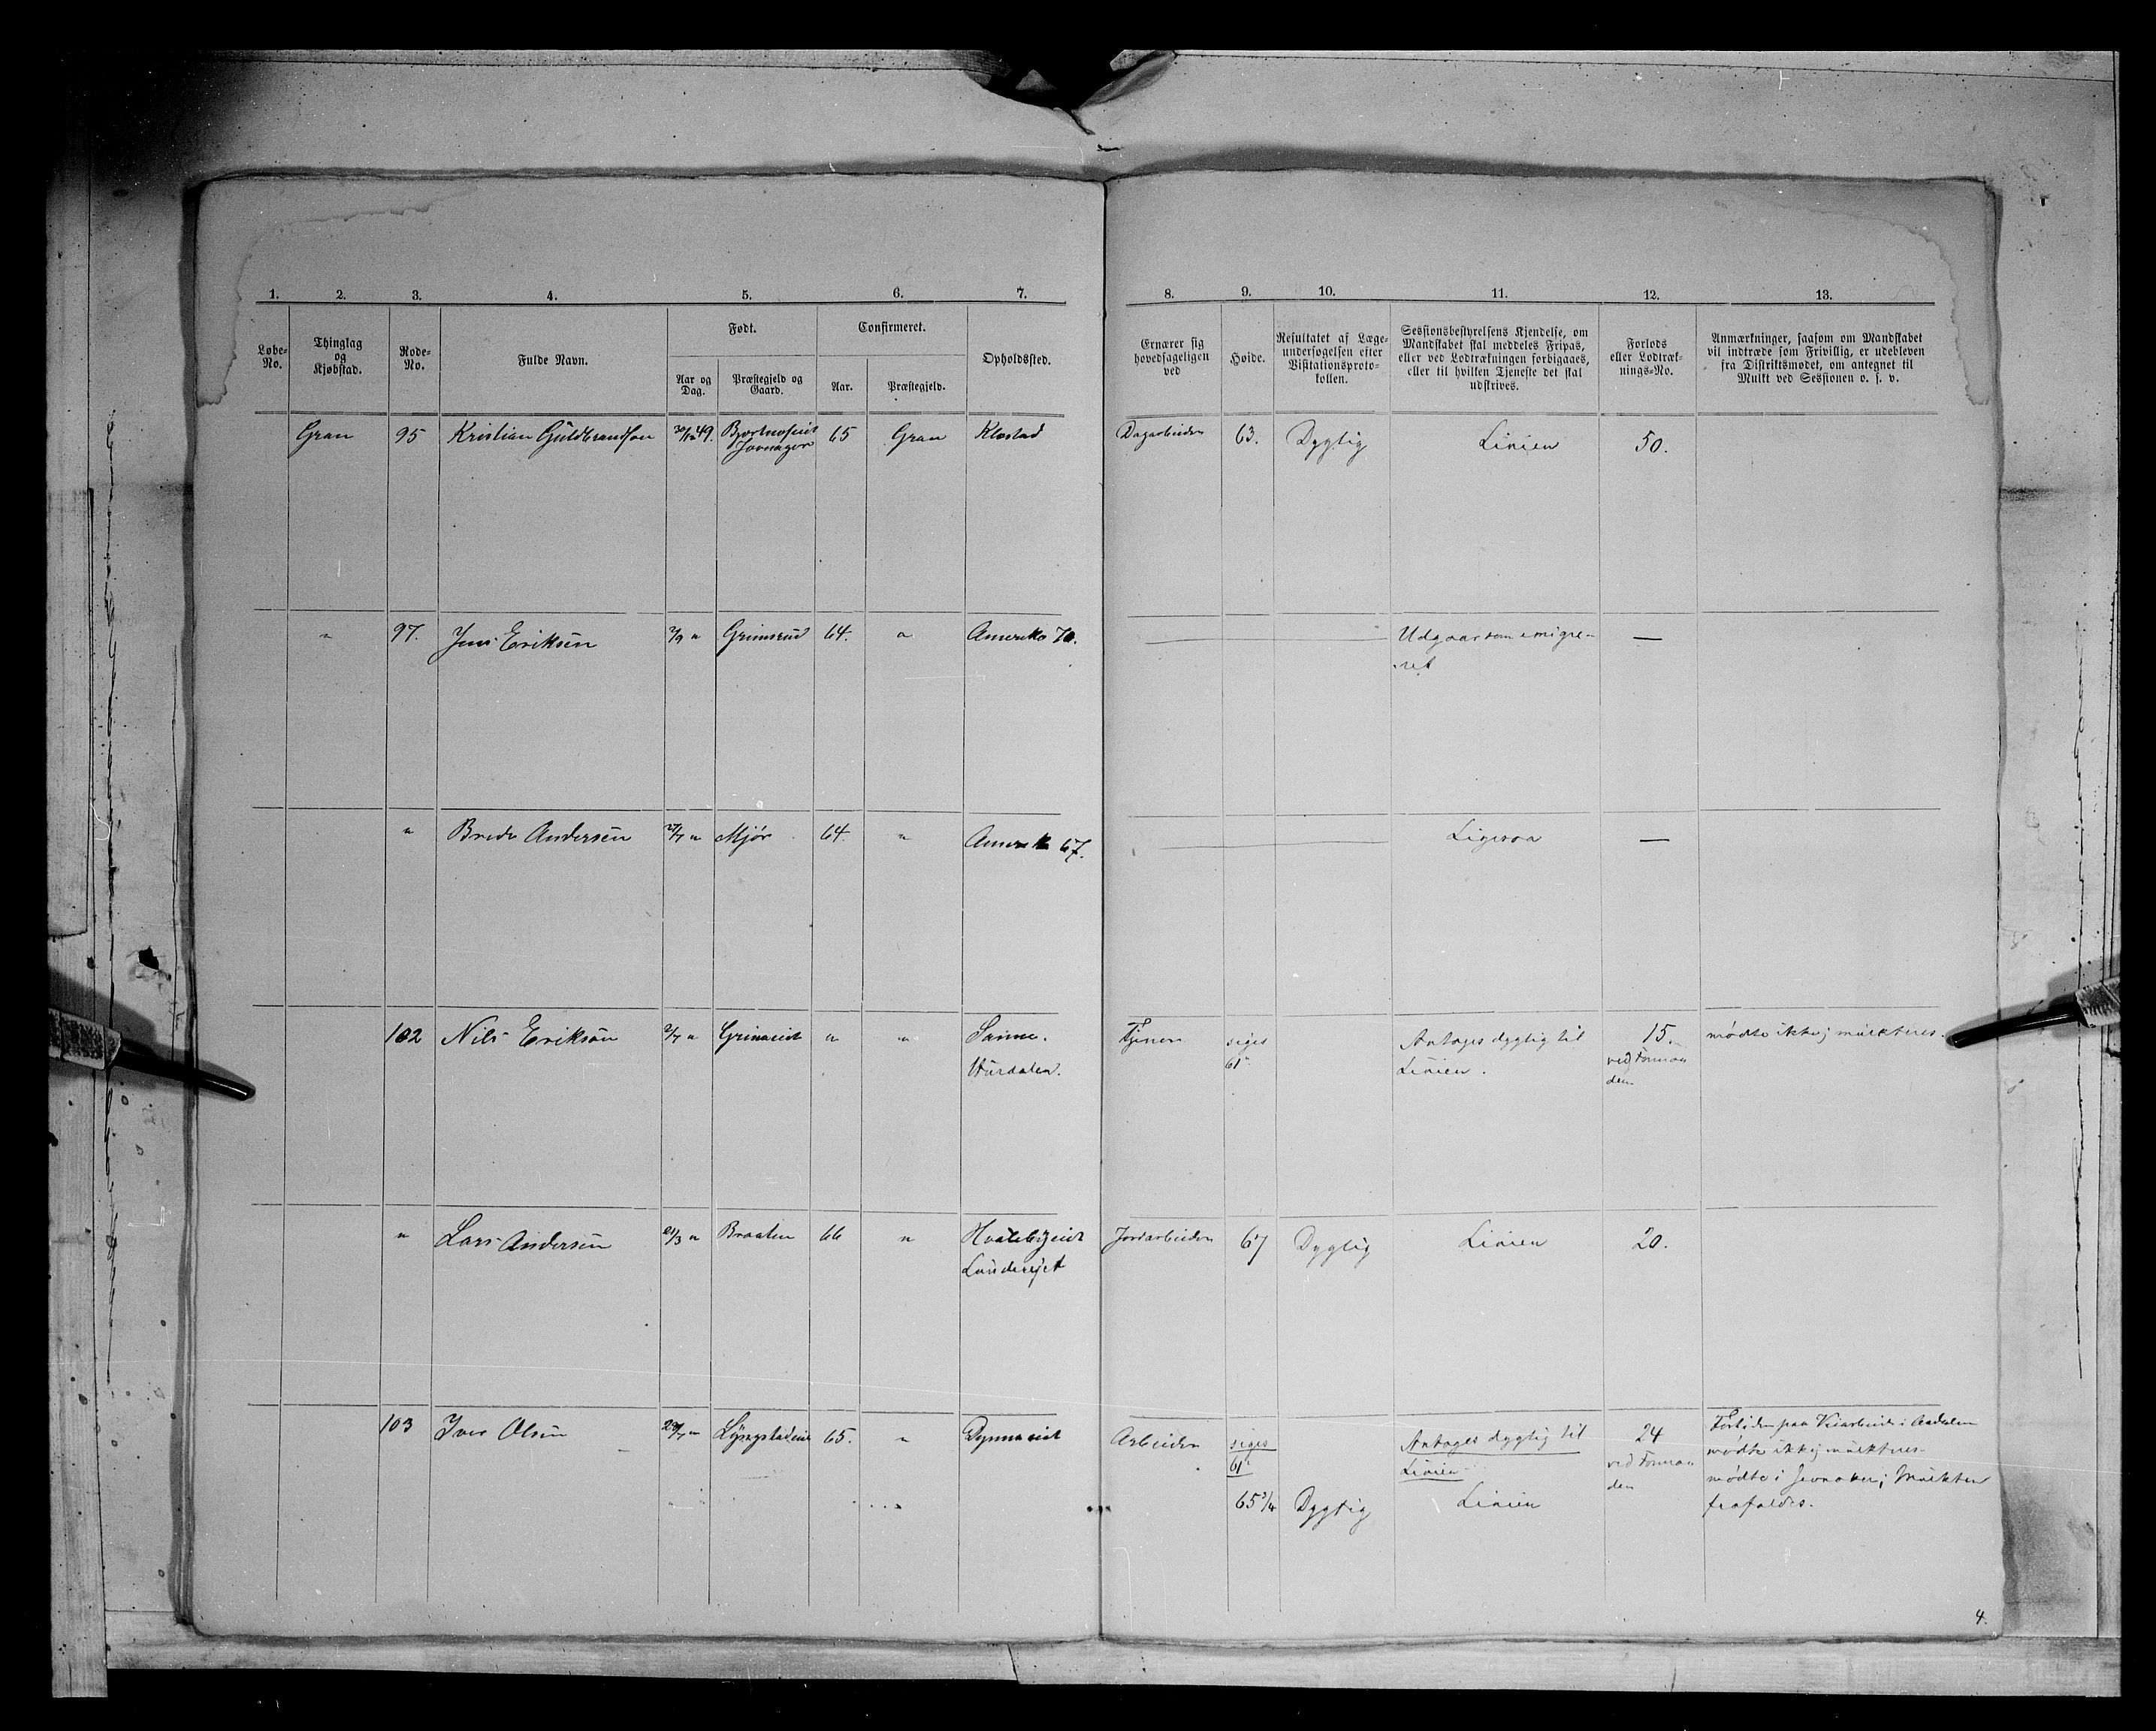 1. 2. 3. 4. 5. 6. 7. 8. 9. 10. 11. 12. 13.
Løbe-No.
Thinglag og Kjøbstad.
Rode-No.
Fulde Navn.
Født.
Aar og Dag.
Præstegjeld og Gaard.
Confirmeret.
Aar.
Præstegjeld.
Opholdssted.
Ernærer sig hovedsageligen ved
Høide.
Resultatet af Læge-
undersøgelsen efter
Visitationsproto-
kollen.
Sessionsbestyrelsens Kjendelse, om
Mandskabet skal meddeles Fripas,
eller ved Lodtrækningen forbigaaes,
eller til hvilken Tjeneste det skal
udskrives.
Forlods
eller Lodtræk-
nings-No.
Anmærkninger, saasom om Mandskabet
vil indtræde som Frivillig, er udebleven
fra Distriktsmødet, om antegnet til
Mulkt ved Sessionen o. s. v.
Gran 95 Kristian Guldbrandsen 49. 65 Gran Klæstad Dagarbeider 63. Dygtig Linien 50.
Jævnager
" 97. Jens Eriksen " Grimsrud 64. " Amerika 70. Udgaar som emigre- —
ret
" Brede Andersen 27/7 " Mjør 64. " Amerika 67. Ligesaa —
102 Nils Eriksøn 2/7 " " " Sanne. Tjener siges Antages dygtig til 15. mødte ikke; mulkteres.
Hurdalen. 61" Linien. ved Forman
den
" Lars Andersen 21/3 " Braaten 66 " Hvalebyeiet Jordarbeider 67 Dygtig Linien 20.
103 Iver Olsen " 65. " Dynnaeiet Arbeider siges Antages dygtig til 24 Fortiden paa Veiarbeide i Aadalen
61" Linien ved Forman mødte ikke; mulkteres.
den mødte i Jevnaker; Mulkten
65 3/4 Dygtig Linien frafaldes.
4.